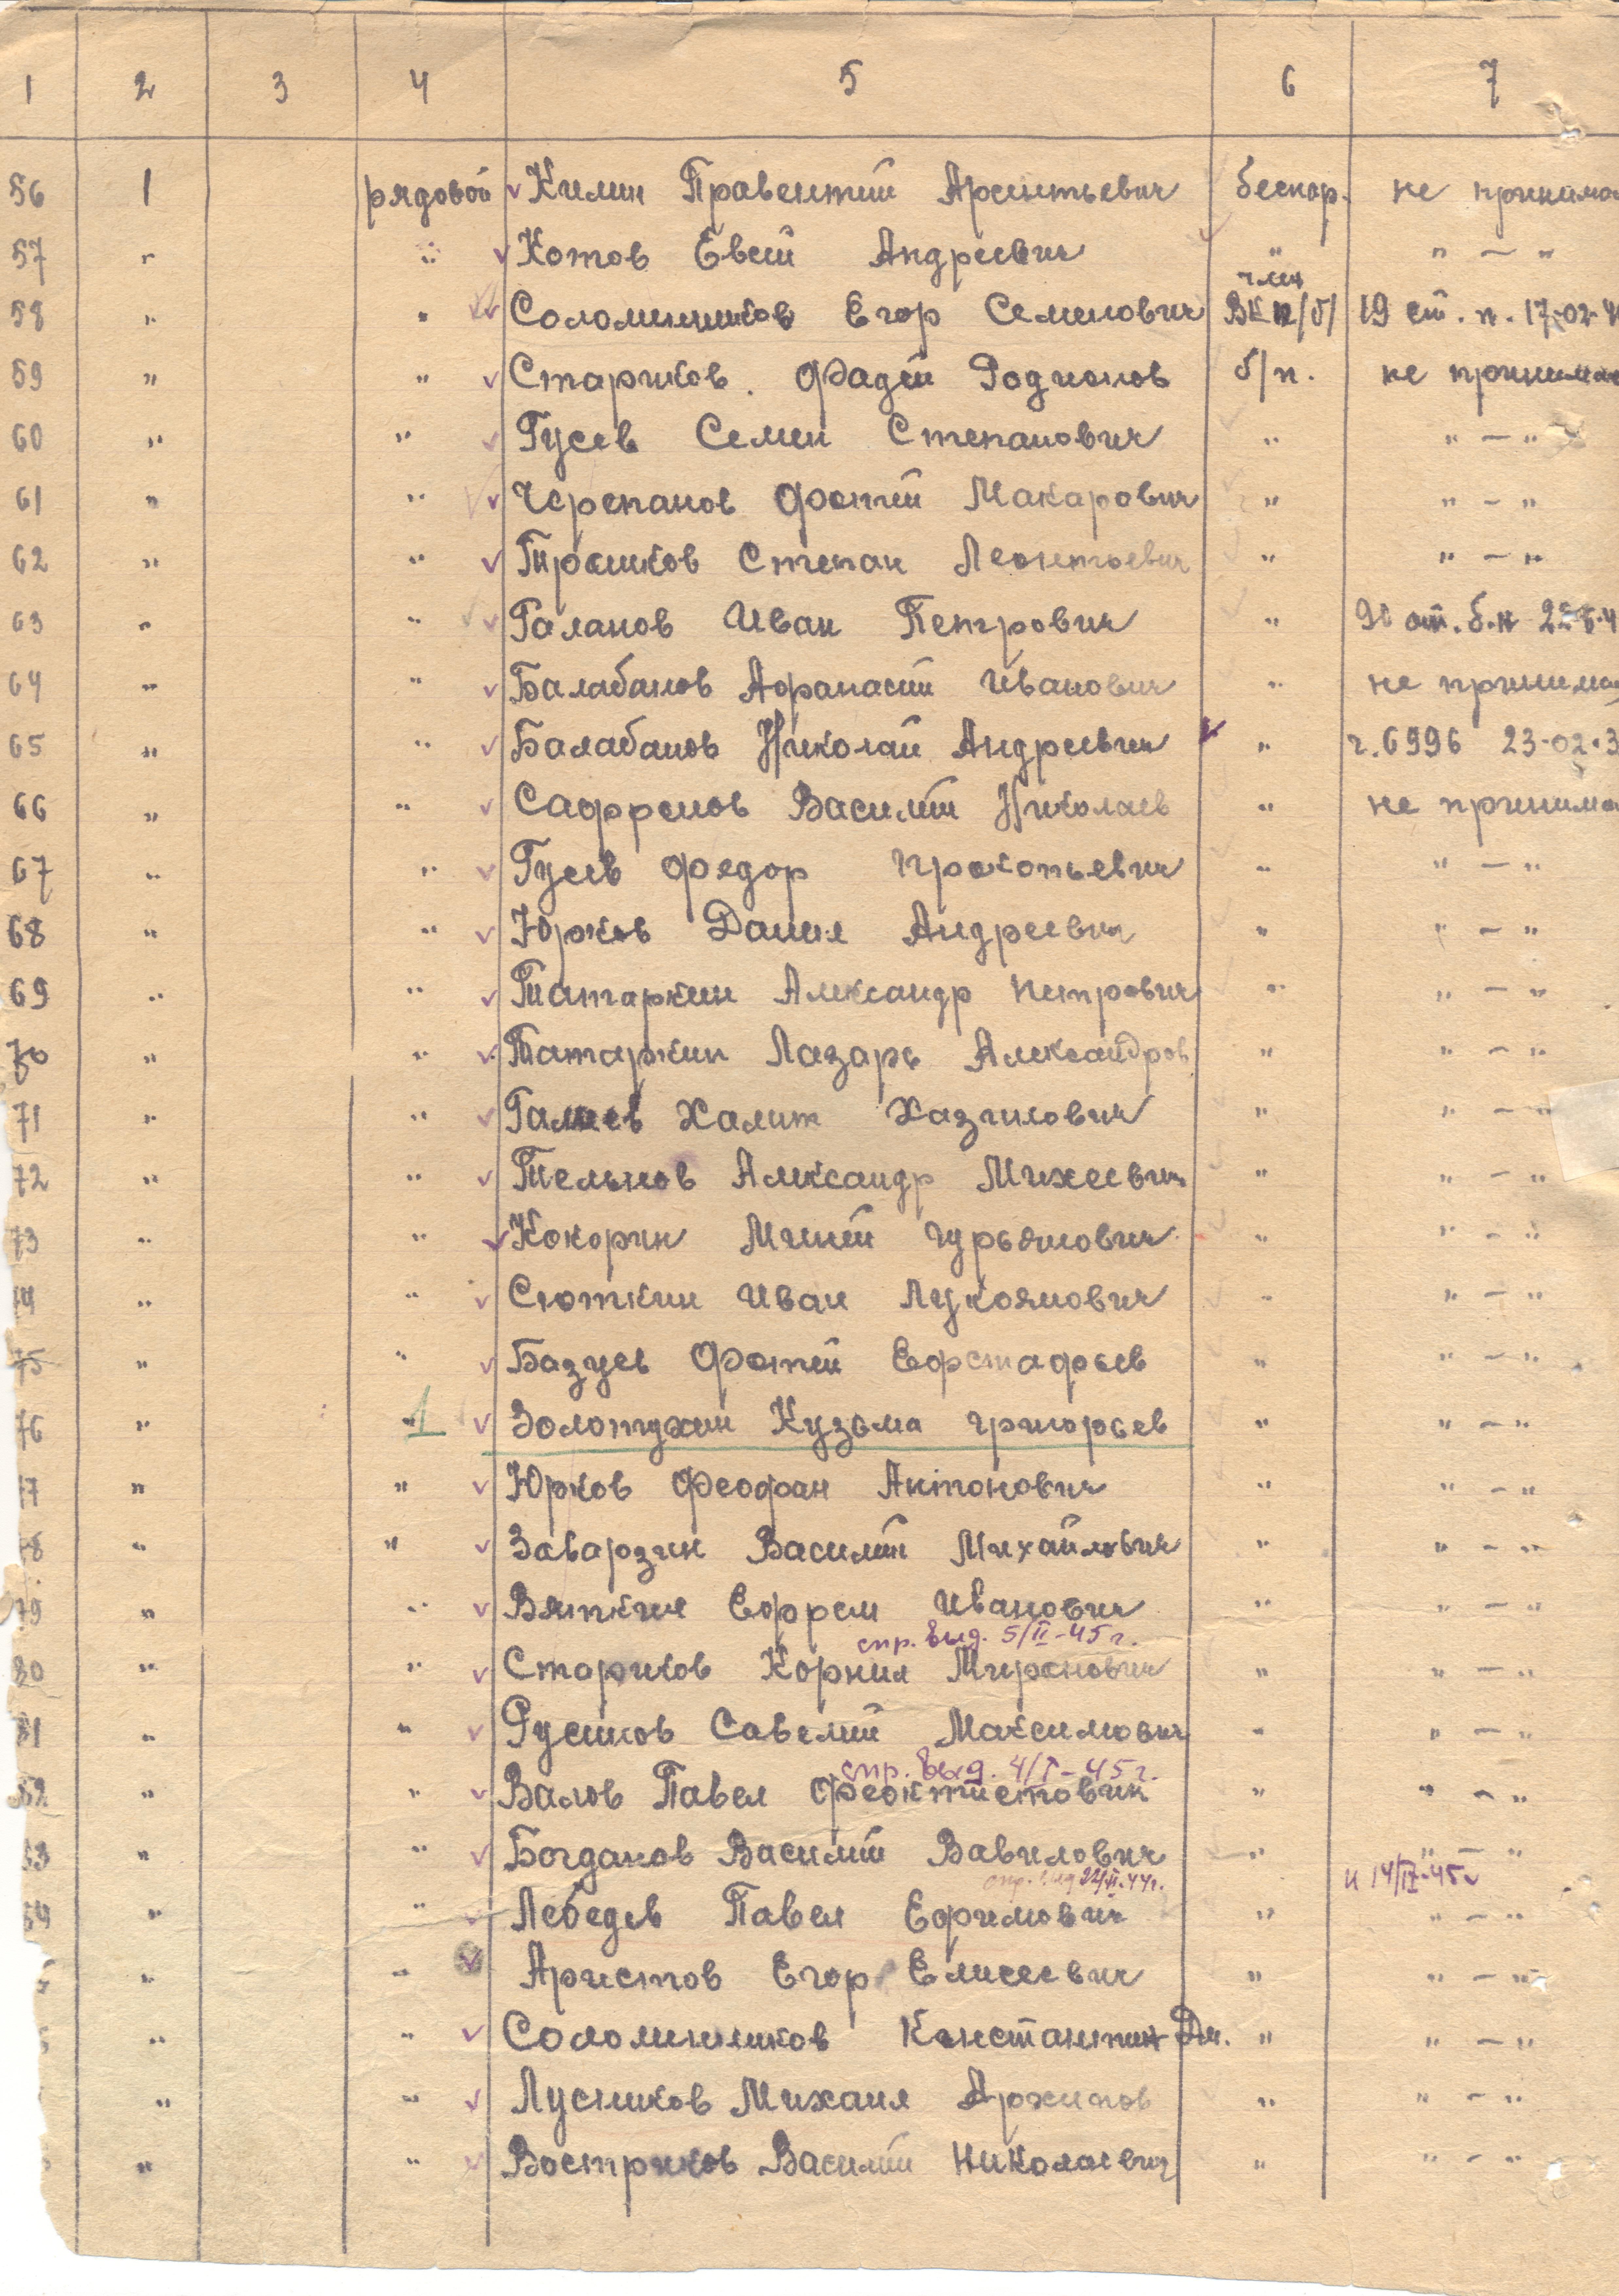 1 2 3 4 5 6 7
56 1 рядовой Килин Правентий Арсентьевич беспар. не принима
57 " " Котов Евсей Андреевич " " — "
член
58 " " Соломенников Егор Семенович ВКП/б/ 19 ст. п. 17-02-4
59 " " Стариков. Фадей Родионов б/п. не принима
60 " " Гусев Семен Степанович " " — "
61 " " Черепанов Фотий Макарович " " — "
62 " " Трошков Степан Леонтьевич " " — "
63 " " Галанов Иван Петрович "
64 " " Балабанов Афанасий Иванович " не принима
65 " " Балабанов Николай Андреевич " ч.6996 23-02-3
66 " " Сафронов Василий Николаев " не принима
67 " " Гусев Федор Прокопьевич " " — "
68 " " Юрков Данил Андреевич " " — "
69 " " Татаркин Александр Петрович " " — "
70 " " Татаркин Лазарь Александров " " — "
71 " " Галиев Халит Хазилович " " — "
72 " " Тельнов Александр Михеевич " " — "
73 " " Кокорин Миней Гурьянович " " — "
74 " " Сюткин Иван Лукоянович " " — "
75 " " Базуев Фотий Ефстафьев " " — "
76 " 1 Золотухин Кузьма Григорьев " " — "
77 " " Юрков Феофан Антонович " " — "
78 " " Заварзин Василий Михайлович " " — "
79 " " Вяткин Ефрем Иванович " " — "
спр. выд. 5/II-45г.
80 " " Стариков Корнил Миронович " " — "
81 " " Русинов Савелий Максимович " " — "
спр. выд. 4/I-45г.
82 " " Валов Павел Феоктистович " " — "
83 " " Богданов Василий Вавилович " " — "
спр. выд 22/II-44г. и 14/IV-45г
84 " " Лебедев Павел Ефимович " " — "
" " Аристов Егор Елисеевич " " — "
" " Соломенников Константин Дм. " " — "
" " Лусников Михаил Архипов " " — "
" " Востриков Василий Николаевич " " — "